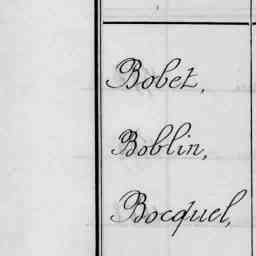 Bobet,
Boblin,
Bocquel,